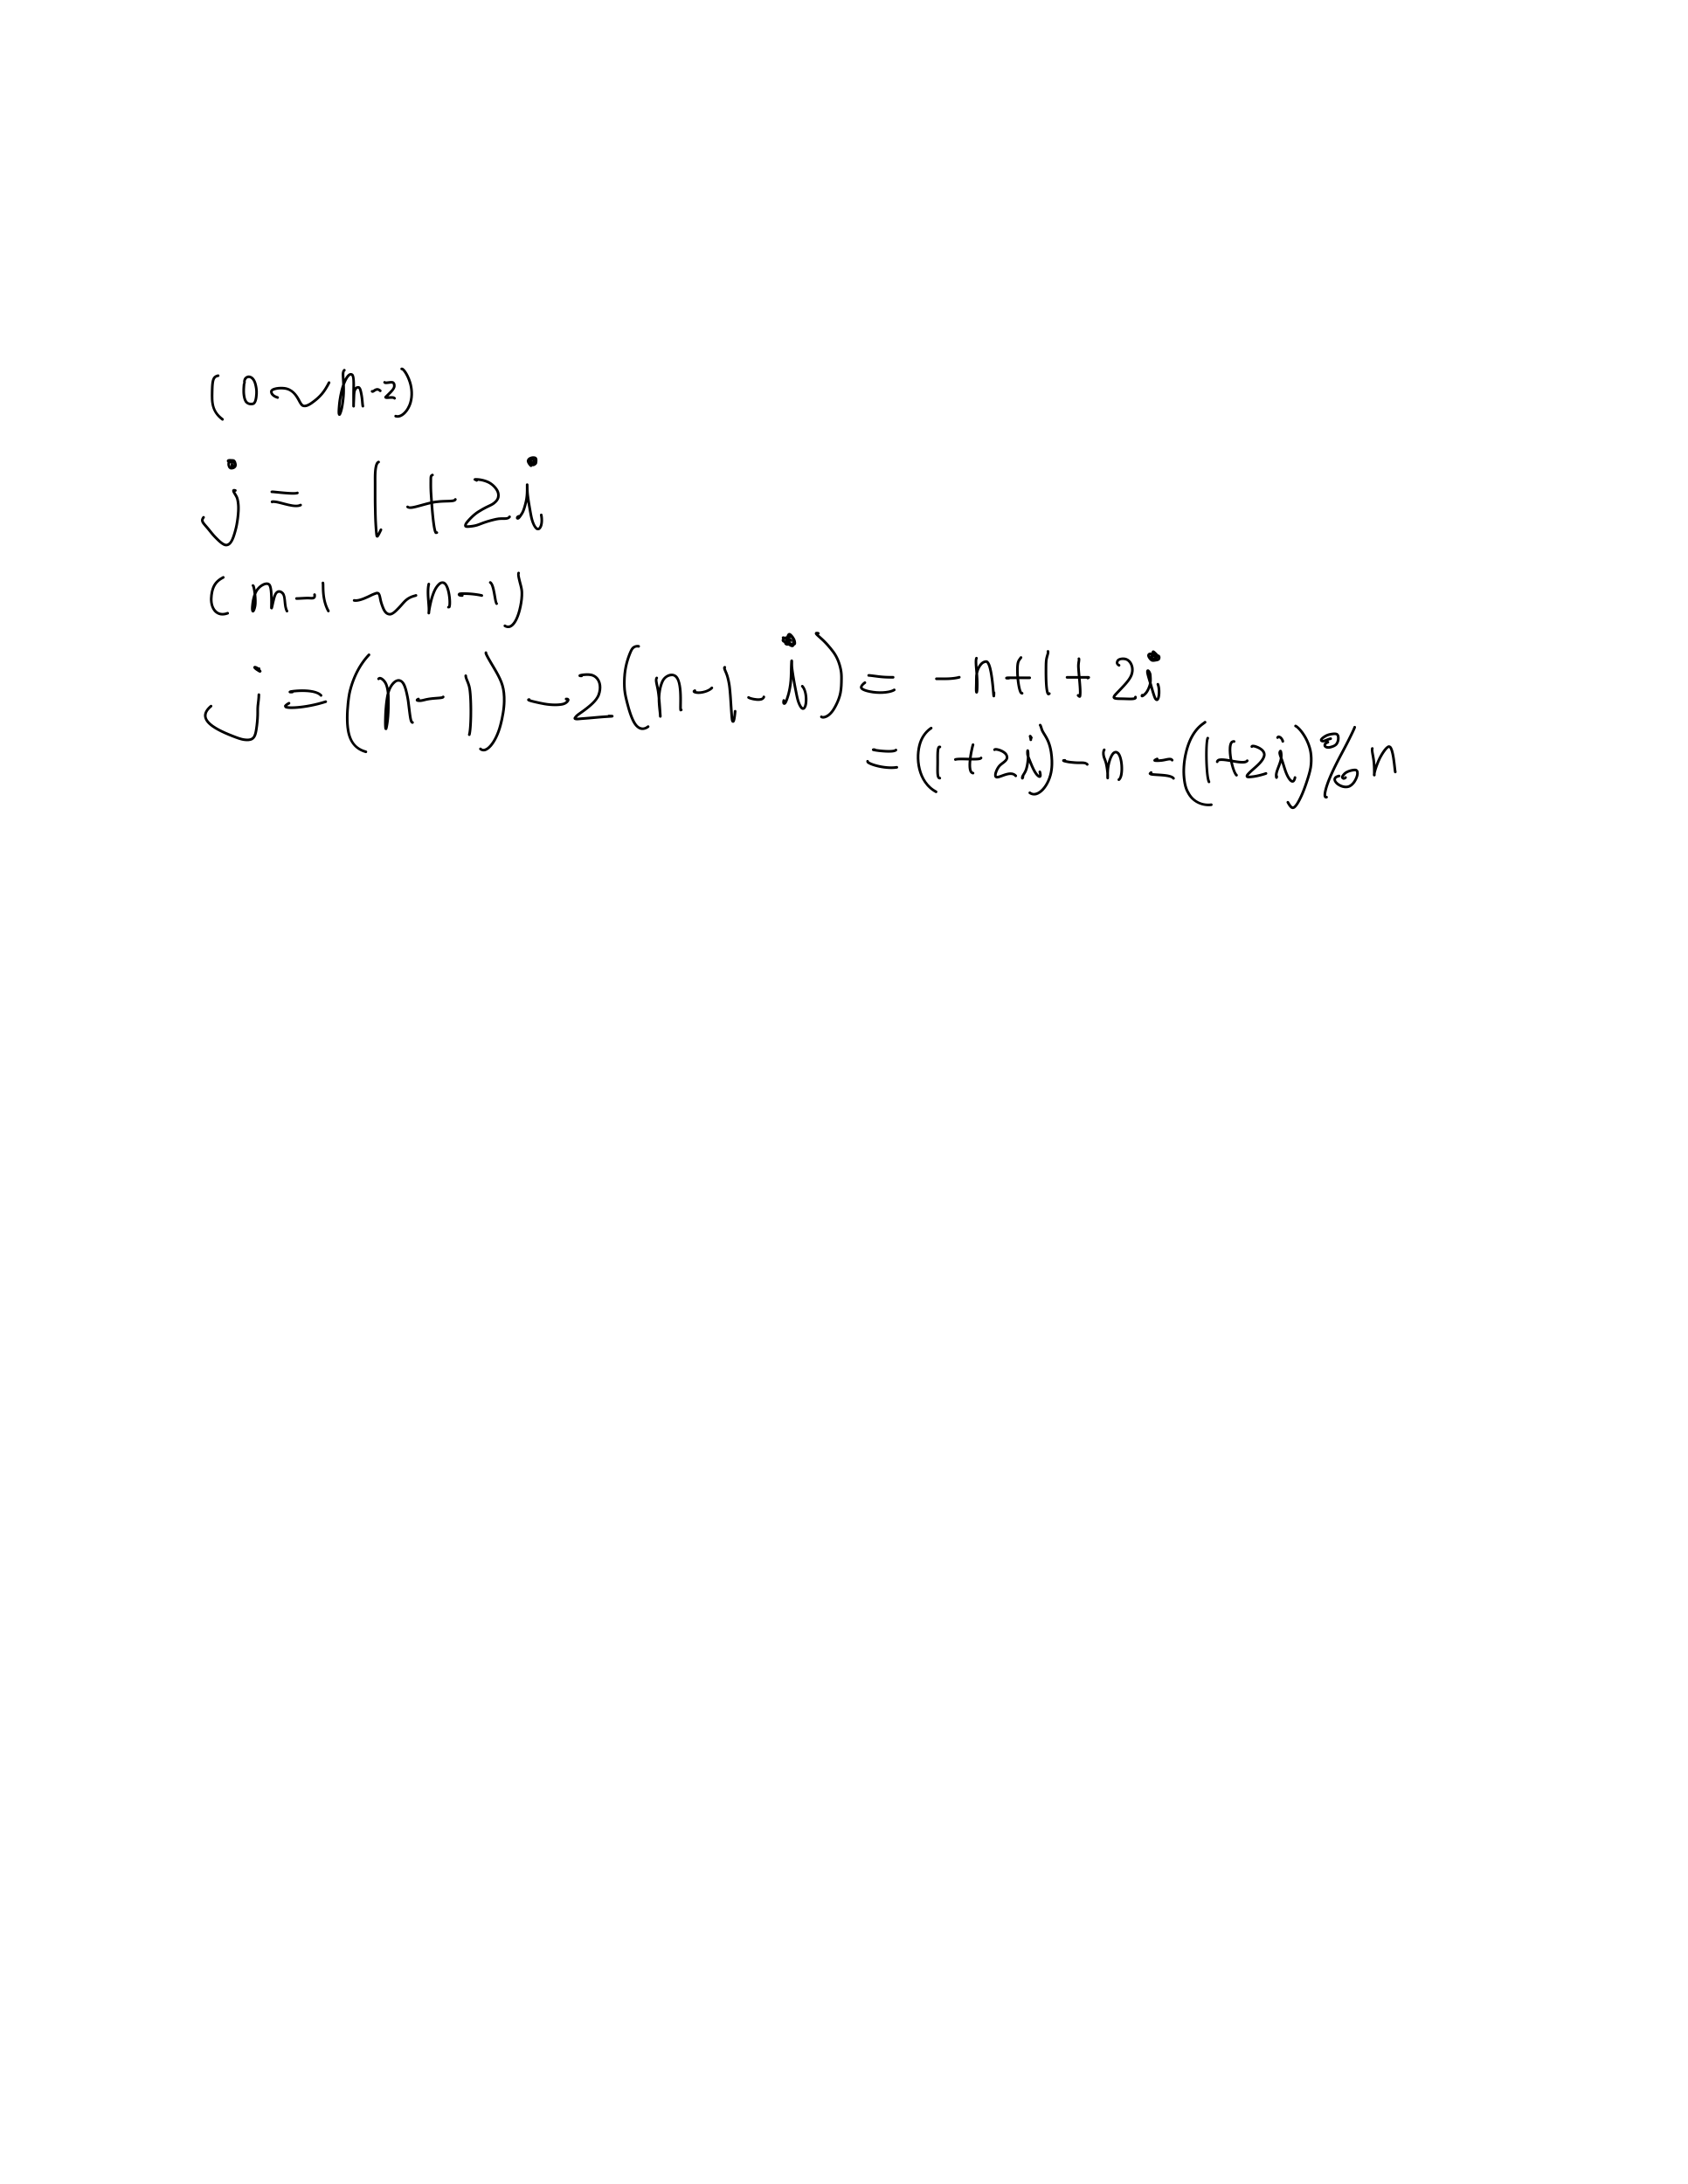 (0~m-2)
j = 1+2i
(m-1~n-1)
j=(n-1)-2(n-1-i)= -n+1+2i
=(1+2i)-n=(1+2i)%n